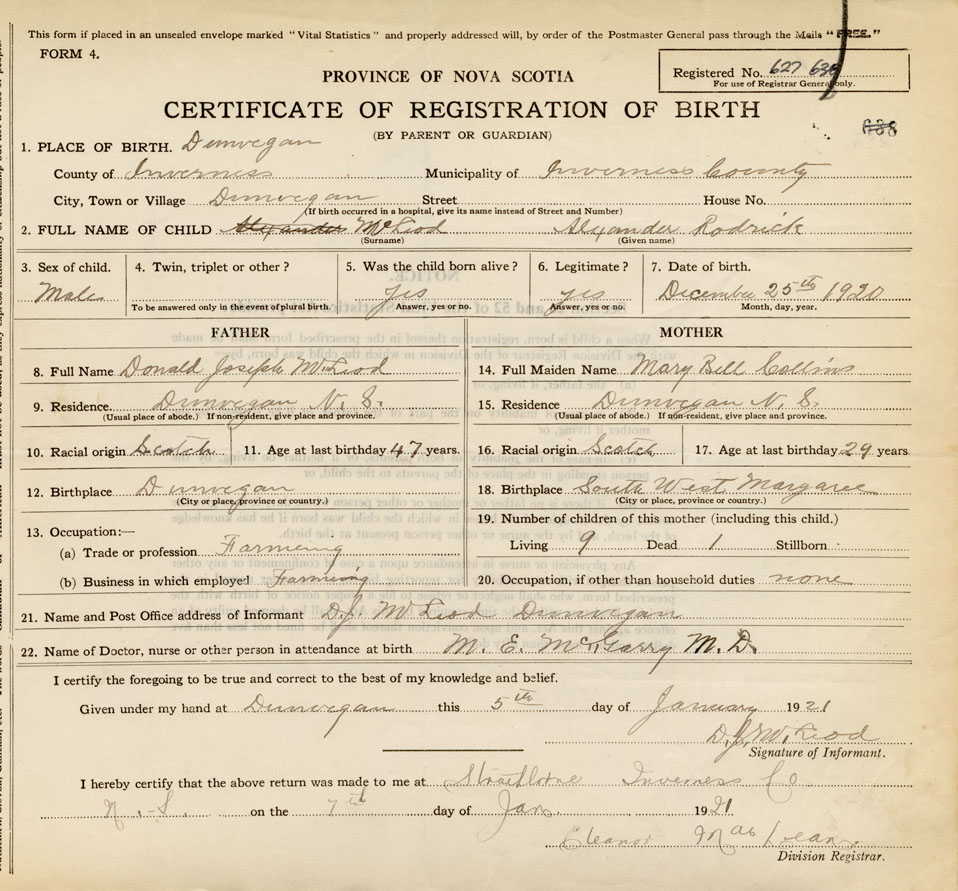 This form if placed in an unsealed envelope marked "Vital Statistics" and properly addressed will, by order of the Postmaster General pass through the Mails "FREE."
FORM 4.
PROVINCE OF NOVA SCOTIA
Registered No. 627 638
For use of Registrar General only.
CERTIFICATE OF REGISTRATION OF BIRTH
(BY PARENT OR GUARDIAN)
638
1. PLACE OF BIRTH. Dunvegan
County of Inverness Municipality of Inverness County
City, Town or Village Dunvegan Street House No.
(If birth occurred in a hospital, give its name instead of Street and Number)
2. FULL NAME OF CHILD Alexander McLeod Alexander Rodrick
(Surname) (Given name)
3. Sex of child. 4. Twin, triplet or other? 5. Was the child born alive? 6. Legitimate? 7. Date of birth.
Male yes yes December 25th 1920
To be answered only in the event of plural birth. Answer, yes or no. Answer, yes or no. Month, day, year.
FATHER MOTHER
8. Full Name Donald Joseph McLeod 14. Full Maiden Name Mary Bell Collins
9. Residence. Dunvegan N. S. 15. Residence Dunvegan N. S.
(Usual place of abode.) If non-resident, give place and province. (Usual place of abode.) If non-resident, give place and province.
10. Racial origin Scotch 11. Age at last birthday 47 years. 16. Racial origin Scotch 17. Age at last birthday 29 years
12. Birthplace Dunvegan 18. Birthplace South West Margaree
(City or place, province or country.) (City or place, province or country.)
13. Occupation:— 19. Number of children of this mother (including this child.)
(a) Trade or profession Farmeing Living 9 Dead 1 Stillborn -
(b) Business in which employed Farming 20. Occupation, if other than household duties none
21. Name and Post Office address of Informant D. J. McLeod Dunvegan
22. Name of Doctor, nurse or other person in attendance at birth M. E. McGarry M. D.
I certify the foregoing to be true and correct to the best of my knowledge and belief.
Given under my hand at Dunvegan this 5th day of January 1921
D. J. McLeod
Signature of Informant.
I hereby certify that the above return was made to me at Strathlorne Inverness Co
N. S. on the 7th day of Jan. 1921
Eleanor MacLean
Division Registrar.